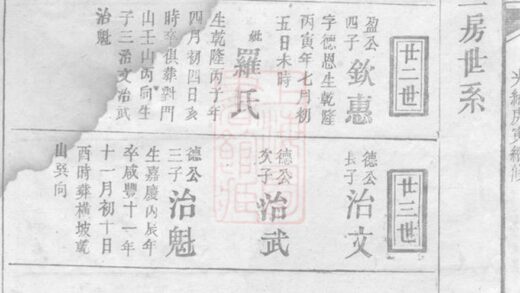 房世系
廿二世
盈公四子 欽惠
字德恩生乾隆
丙寅年七月初
五日未時
妣 羅氏
生乾隆丙子年
四月初四日亥
時卒俱葬對門
山壬山丙向生
子三治文治武
治魁
廿三世
德公長子 治文
德公次子 治武
德公三子 治魁
生嘉慶丙辰年
卒咸豐十一年
十一月初十日
酉時葬橫坡乾
山巽向